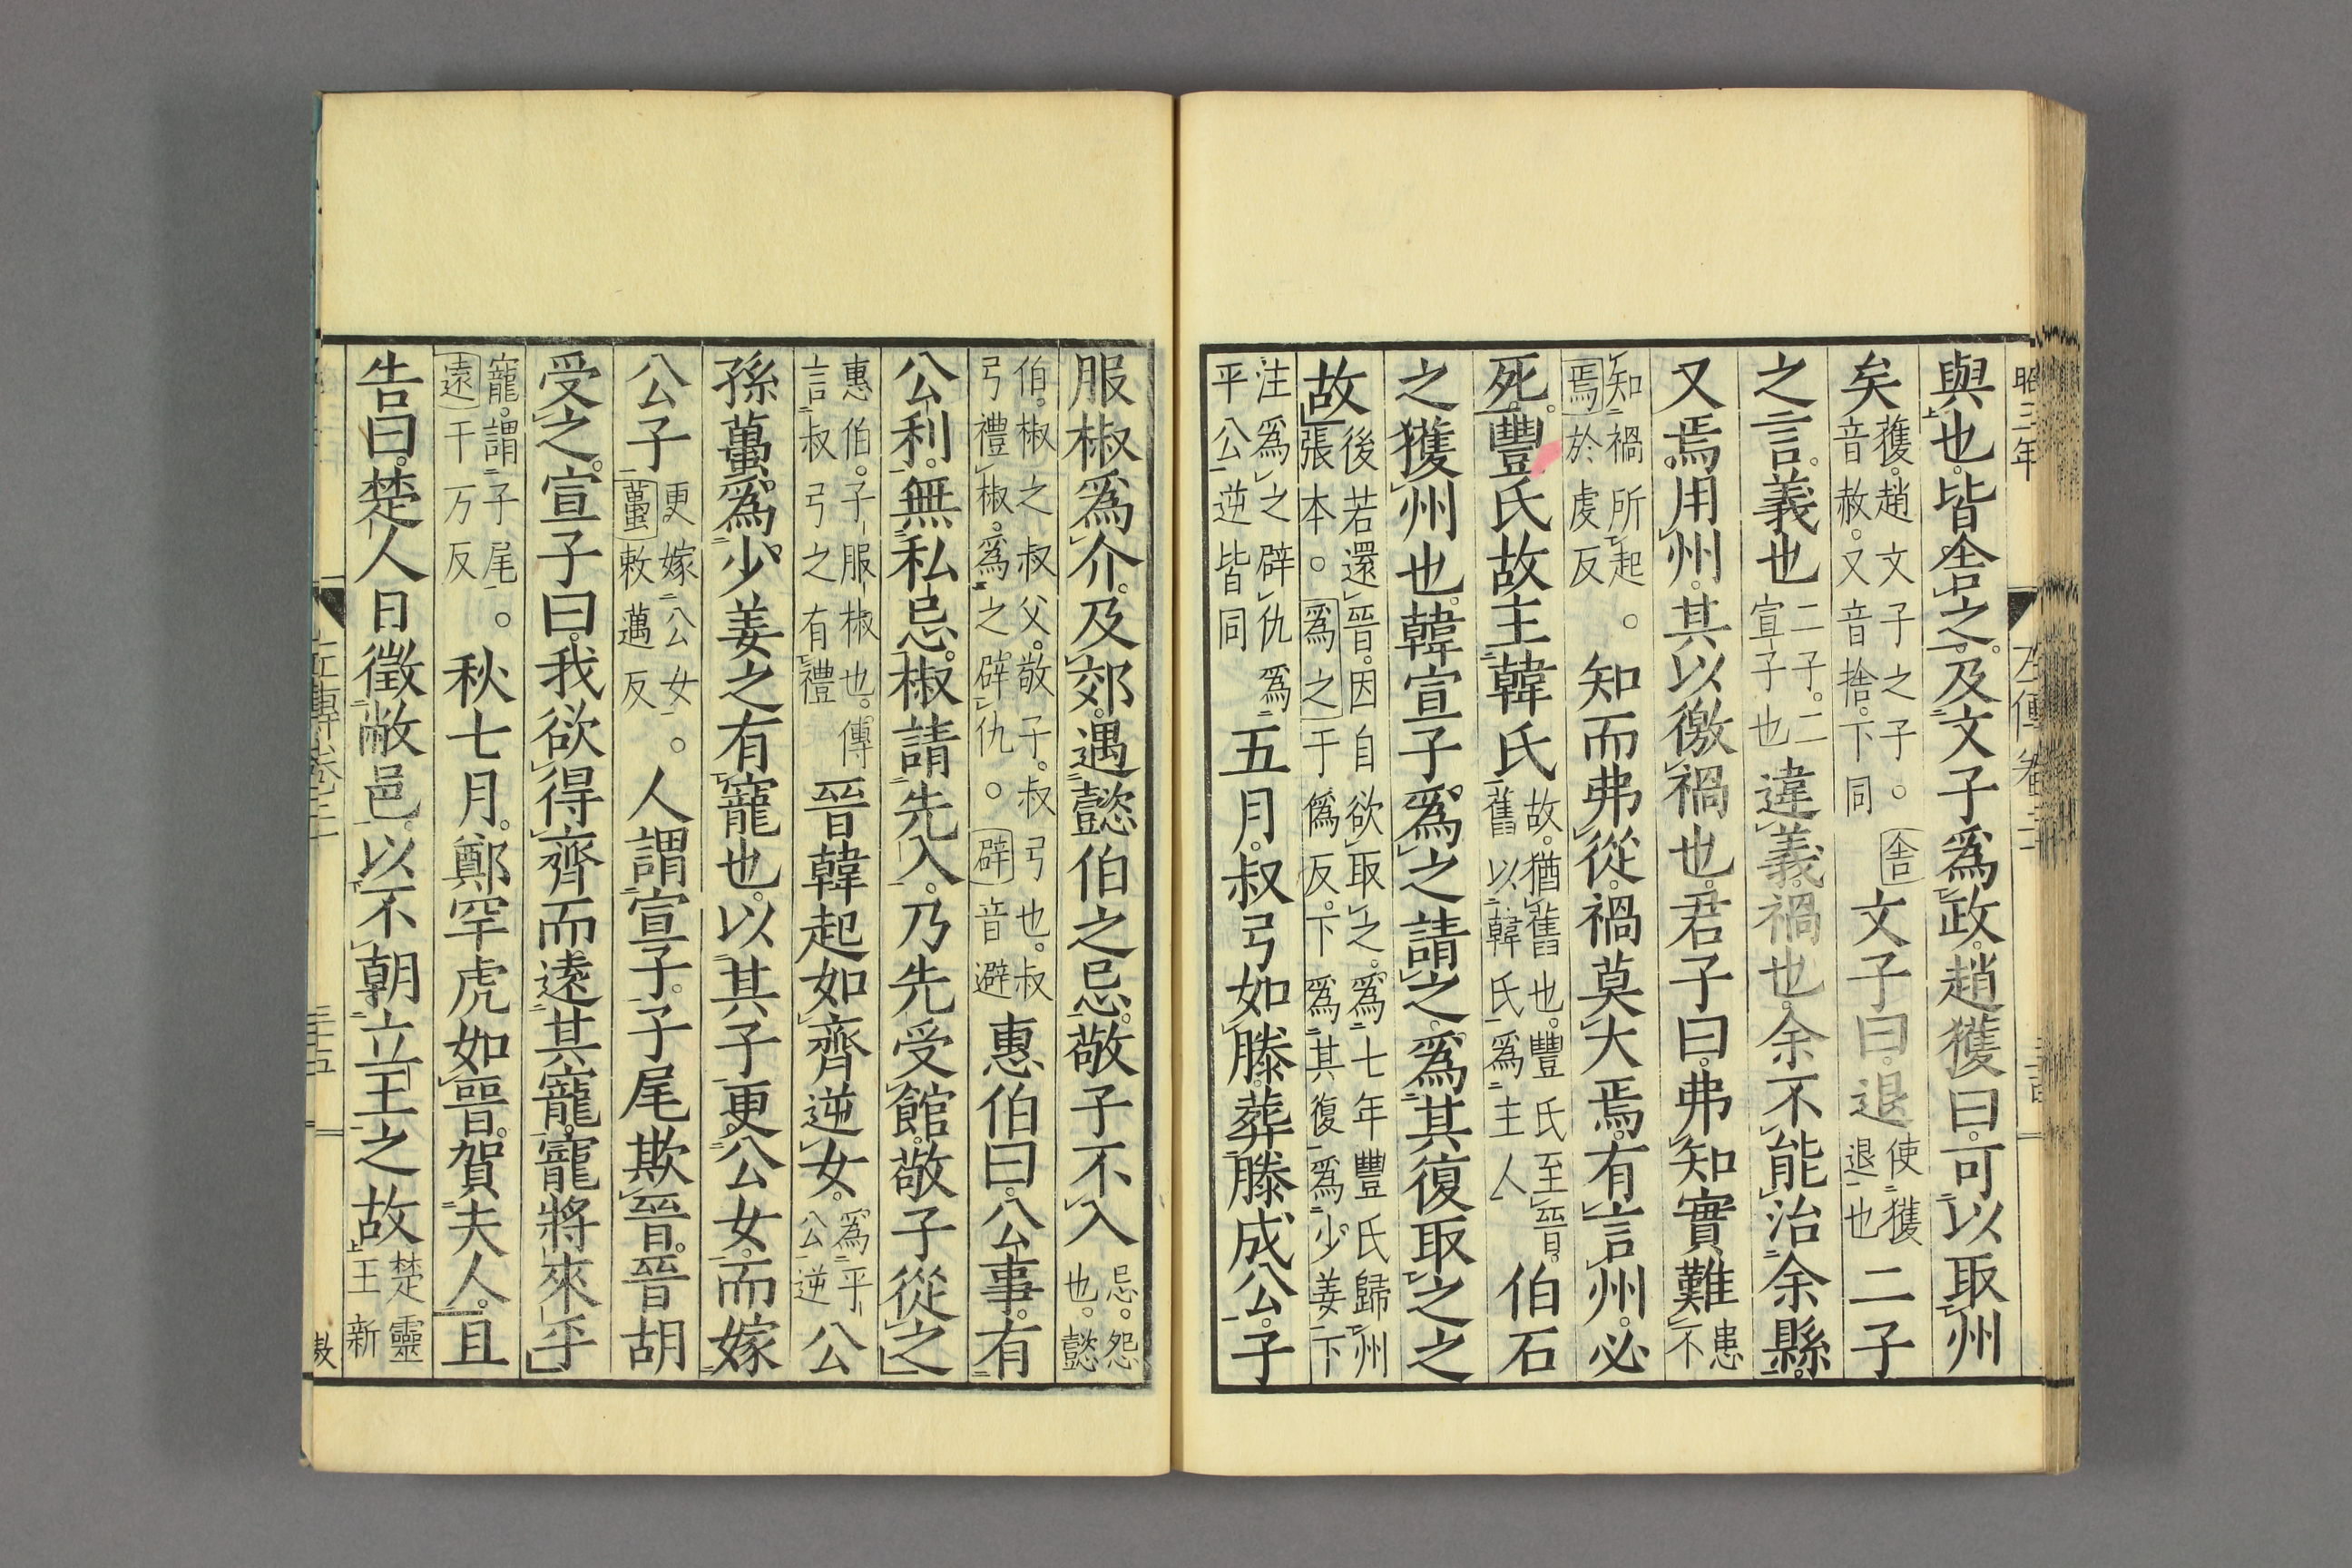 昭三年
與也皆舍之及文子爲政趙獲曰可以取州
矣獲趙文子之子。舍音赦又音捨下同文子曰退使獲退也二子
之言義也二子二宣子也違義禍也余不能治余縣
又焉用州其以徼禍也君子曰弗知實難患不
知禍所起。焉於虔反知而弗從禍莫大焉有言州必
死豐氏故主韓氏故猶舊也豐氏至晉舊以韓氏爲主人伯石
之獲州也韓宣子爲之請之爲其復取之之
故後若還晉因自欲取之爲七年豐氏歸州張本。爲之于僞反下爲其復爲少姜下
注爲之辟仇爲平公逆皆同五月叔弓如滕葬滕成公子
服椒爲介及郊遇懿伯之忌敬子不入忌怨也懿
伯椒之叔父敬子叔弓也叔弓禮椒爲之辟仇。辟音避惠伯曰公事有
公利無私忌椒請先入乃先受館敬子從之
惠伯子服椒也傳言叔弓之有禮晉韓起如齊逆女爲平公逆公
孫蠆爲少姜之有寵也以其子更公女而嫁
公子更嫁公女。蠆敕邁反人謂宣子子尾欺晉晉胡
受之宣子曰我欲得齊而遠其寵寵將來乎
寵謂子尾。遠于万反秋七月鄭罕虎如晉賀夫人且
告曰楚人日徵敝邑以不朝立王之故楚靈王新